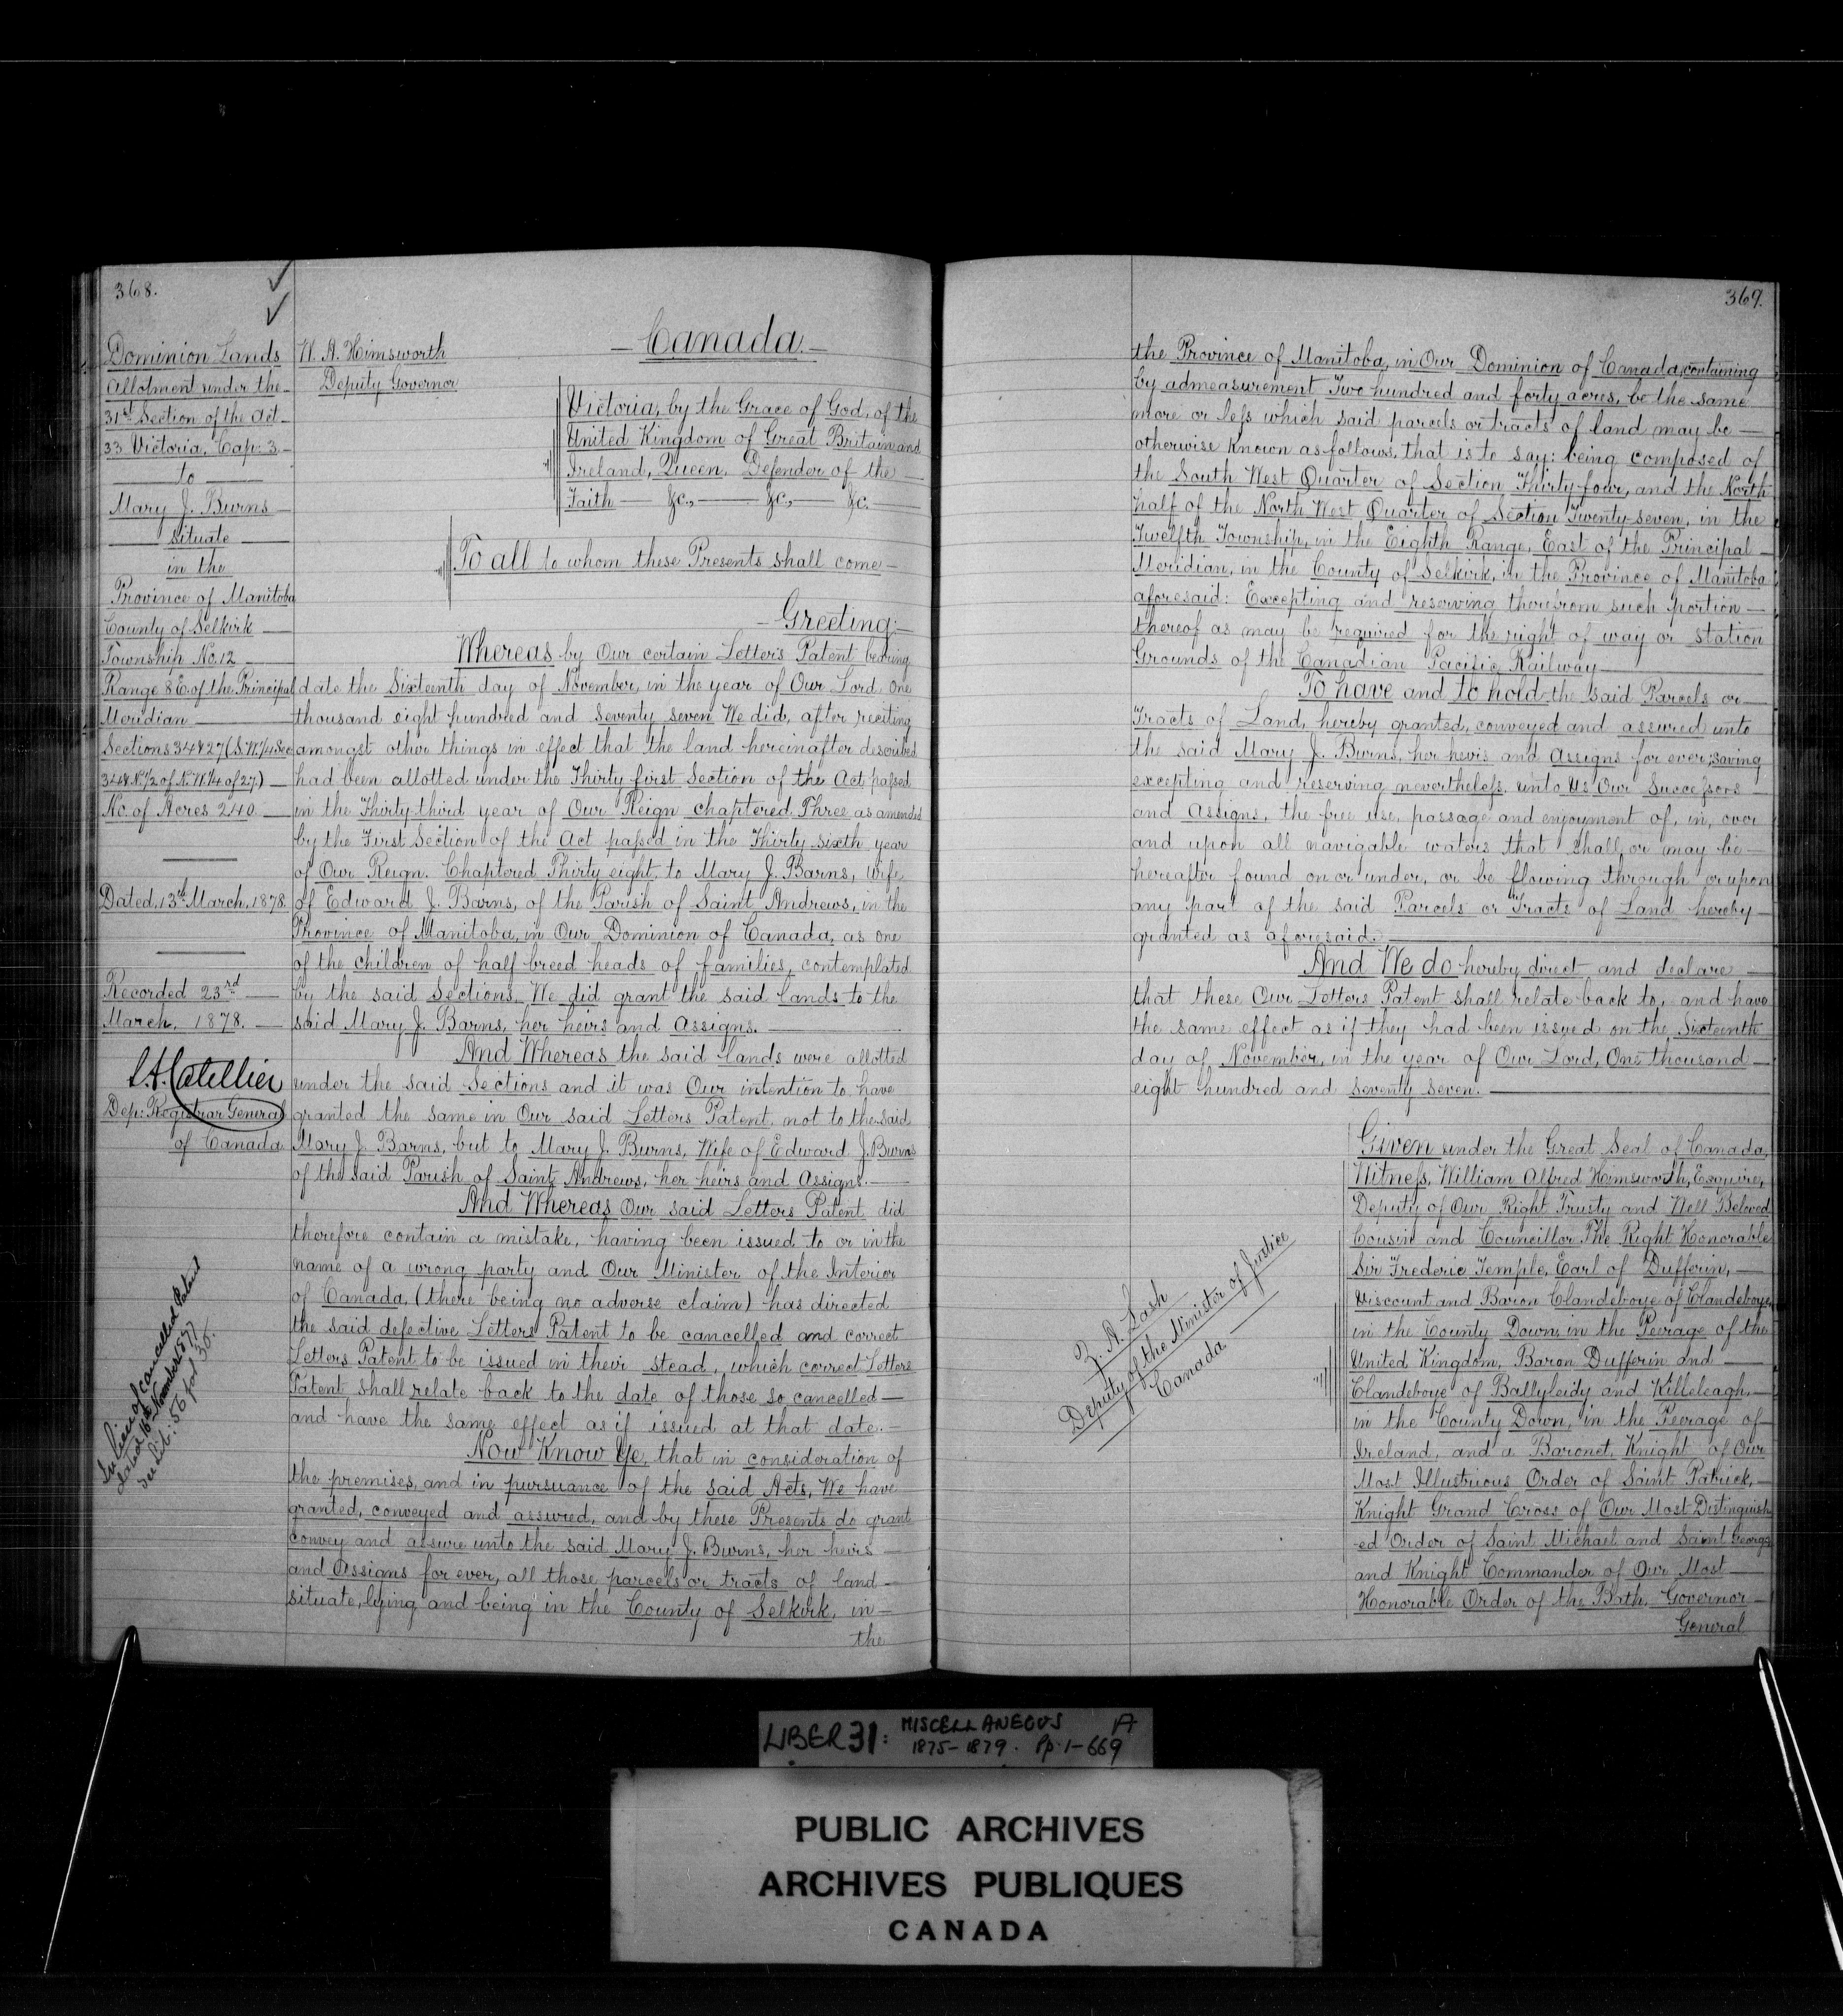 368.
Dominion Lands
Allotment under the
31st Section of the Act
33 Victoria, Cap: 3
to
Mary J. Burns
situate
in the
Province of Manitoba
County of Selkirk
Township No. 12
Range 8 E. of the Principal
Meridian
Sections 34 & 27 (S.W. 1/4 Sec
34 & N. 1/2 of N.W. 1/4 of 27)
No. of Acres 240
Dated, 13th March, 1878.
Recorded 23rd
March, 1878.
L. A. Catellier
Dep: Registrar General
of Canada
In lieu of cancelled Patent
dated 16th November 1877
see Lib: 56 fol 35.
W. A. Himsworth
Deputy Governor
Canada.
Victoria, by the Grace of God, of the
United Kingdom of Great Britain and
Ireland, Queen, Defender of the
Faith &c., &c., &c.
To all to whom these Presents shall come
Greeting:
Whereas by Our certain Letters Patent bearing
date the Sixteenth day of November, in the year of Our Lord One
thousand eight hundred and Seventy seven We did, after reciting
amongst other things in effect that the land hereinafter described
had been allotted under the Thirty first Section of the Act passed
in the Thirty-third year of Our Reign chaptered Three as amended
by the First Section of the Act passed in the Thirty sixth year
of Our Reign. Chaptered Thirty eight, to Mary J. Barns, Wife
of Edward J. Barns, of the Parish of Saint Andrews, in the
Province of Manitoba, in Our Dominion of Canada, as one
of the children of half breed heads of families, contemplated
by the said Sections, We did grant the said lands to the
said Mary J. Barns, her heirs and Assigns.
And Whereas the said lands were allotted
under the said Sections and it was Our intention to have
granted the same in Our said Letters Patent, not to the said
Mary J. Barns, but to Mary J. Burns, Wife of Edward J. Burns
of the said Parish of Saint Andrews, her heirs and Assigns.
And Whereas Our said Letters Patent did
therefore contain a mistake, having been issued to or in the
name of a wrong party and Our Minister of the Interior
of Canada, (there being no adverse claim) has directed
the said defective Letters Patent to be cancelled and correct
Letters Patent to be issued in their stead, which correct Letters
Patent shall relate back to the date of those so cancelled
and have the same effect as if issued at that date.
Now Know Ye, that in consideration of
the premises, and in pursuance of the said Acts, We have
granted, conveyed and assured, and by these Presents do grant
convey and assure unto the said Mary J. Burns, her heirs
and Assigns for ever, all those parcels or tracts of land
situate, lying and being in the County of Selkirk, in
the
369.
the Province of Manitoba, in Our Dominion of Canada, containing
by admeasurement Two hundred and forty acres, be the same
more or less which said parcels or tracts of land may be
otherwise Known as follows, that is to say: being composed of
the South West Quarter of Section Thirty four, and the North
half of the North West Quarter of Section Twenty seven, in the
Twelfth Township, in the Eighth Range, East of the Principal
Meridian, in the County of Selkirk, in the Province of Manitoba
aforesaid: Excepting and reserving therefrom such portion
thereof as may be required for the right of way or station
Grounds of the Canadian Pacific Railway
To have and to hold the said Parcels or
Tracts of Land, hereby granted, conveyed and assured unto
the said Mary J. Burns, her heirs and Assigns for ever; saving
excepting and reserving nevertheless, unto Us Our Successors
and Assigns, the free use, passage and enjoyment of, in, over
and upon all navigable waters that shall or may be
hereafter found on or under, or be flowing through or upon
any part of the said Parcels or Tracts of Land hereby
granted as aforesaid.
And We do hereby direct and declare
that these Our Letters Patent shall relate back to, and have
the same effect as if they had been issued on the Sixteenth
day of November, in the year of Our Lord, One thousand
eight hundred and seventy seven.
Z. A. Lash
Deputy of the Minister of Justice
Canada
Given under the Great Seal of Canada,
Witness, William Alfred Himsworth, Esquire,
Deputy of Our Right Trusty and Well Beloved
Cousin and Councillor The Right Honorable
Sir Frederic Temple, Earl of Dufferin,
Viscount and Baron Clandeboye of Clandeboye,
in the County Down, in the Peerage of the
United Kingdom, Baron Dufferin and
Clandeboye of Ballyleidy and Killeleagh
in the County Down, in the Peerage of
Ireland, and a Baronet, Knight of Our
Most Illustrious Order of Saint Patrick,
Knight Grand Cross of Our Most Distinguish
-ed Order of Saint Michael and Saint George
and Knight Commander of Our Most
Honorable Order of the Bath. Governor
General
LIBER 31: MISCELLANEOUS A
1875-1879. Pp. 1-669
PUBLIC ARCHIVES
ARCHIVES PUBLIQUES
CANADA